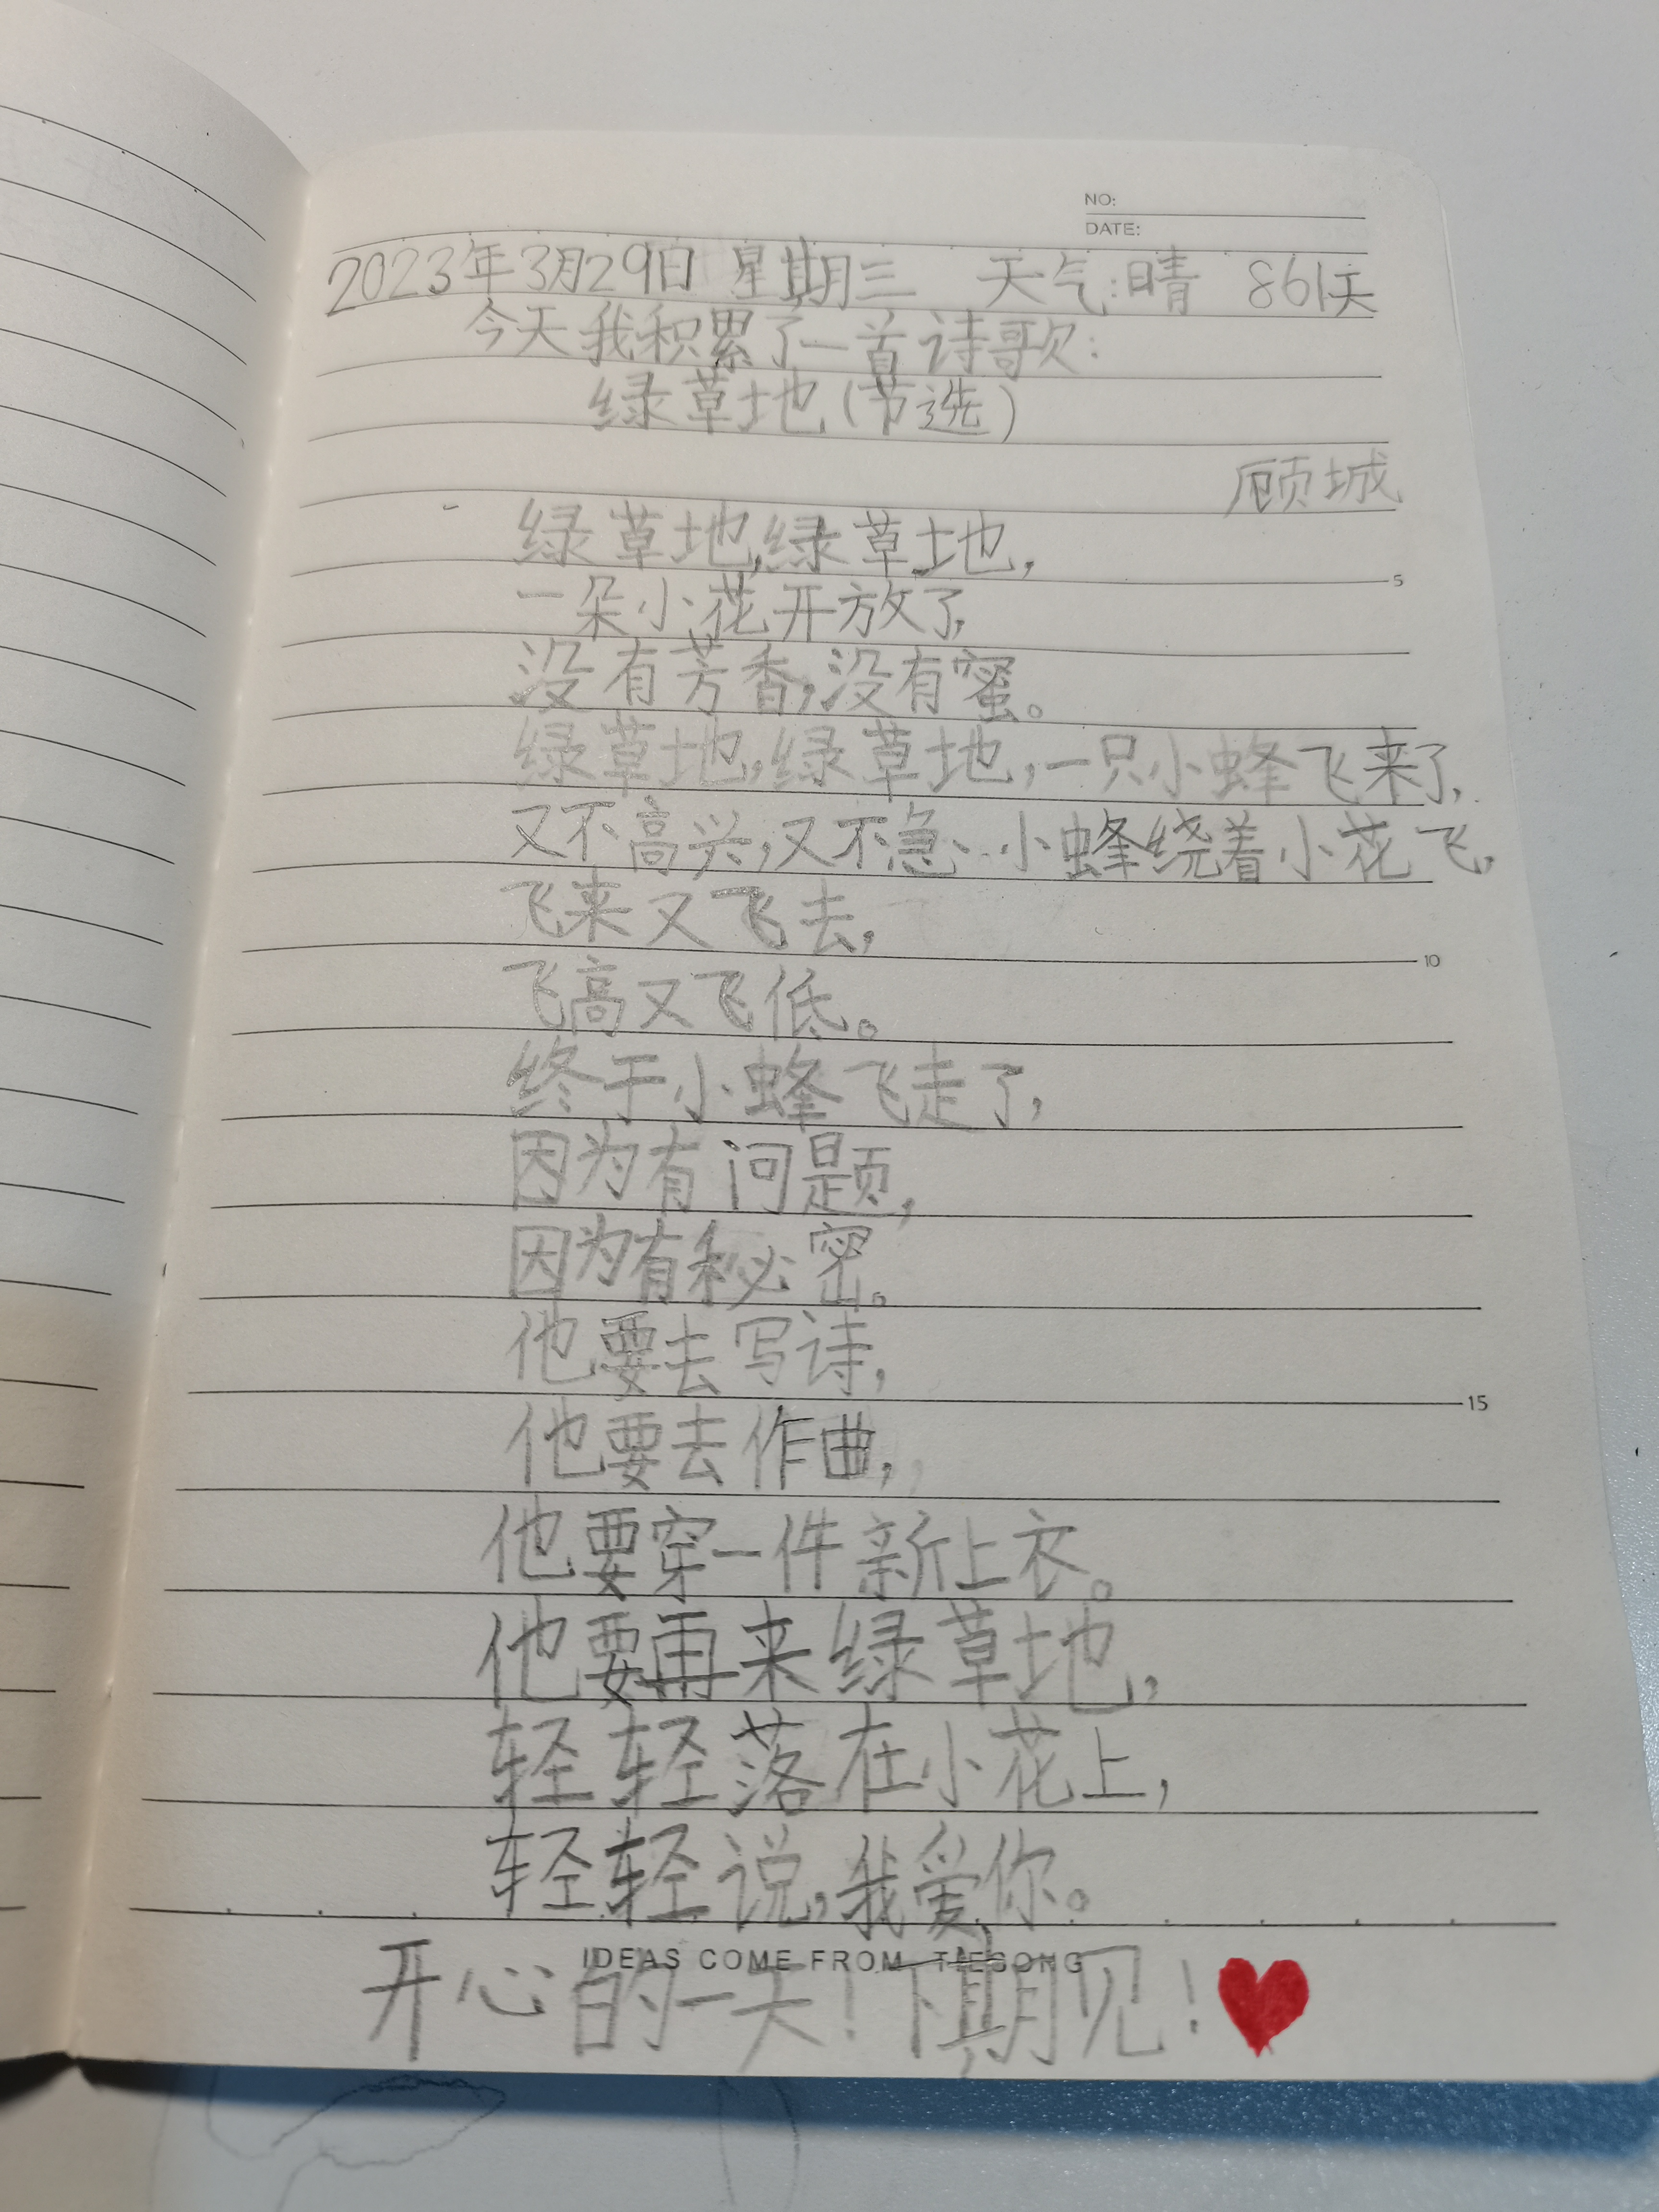 NO:
DATE:
2023年3月29日 星期三 天气:晴 861天
今天我积累了一首诗歌:
绿草地(节选)
顾城
绿草地,绿草地,
5
一朵小花开放了,
没有芳香,没有蜜。
绿草地,绿草地,一只小蜂飞来了,
又不高兴,又不急、小蜂绕着小花飞,
飞来又飞去,
10
飞高又飞低。
终于小蜂飞走了,
因为有问题,
因为有秘密。
他要去写诗,
15
他要去作曲,
他要穿一件新上衣。
他要再来绿草地,
轻轻落在小花上,
轻轻说,我爱你。
IDEAS COME FROM TIESONG
开心的一天!下期见!